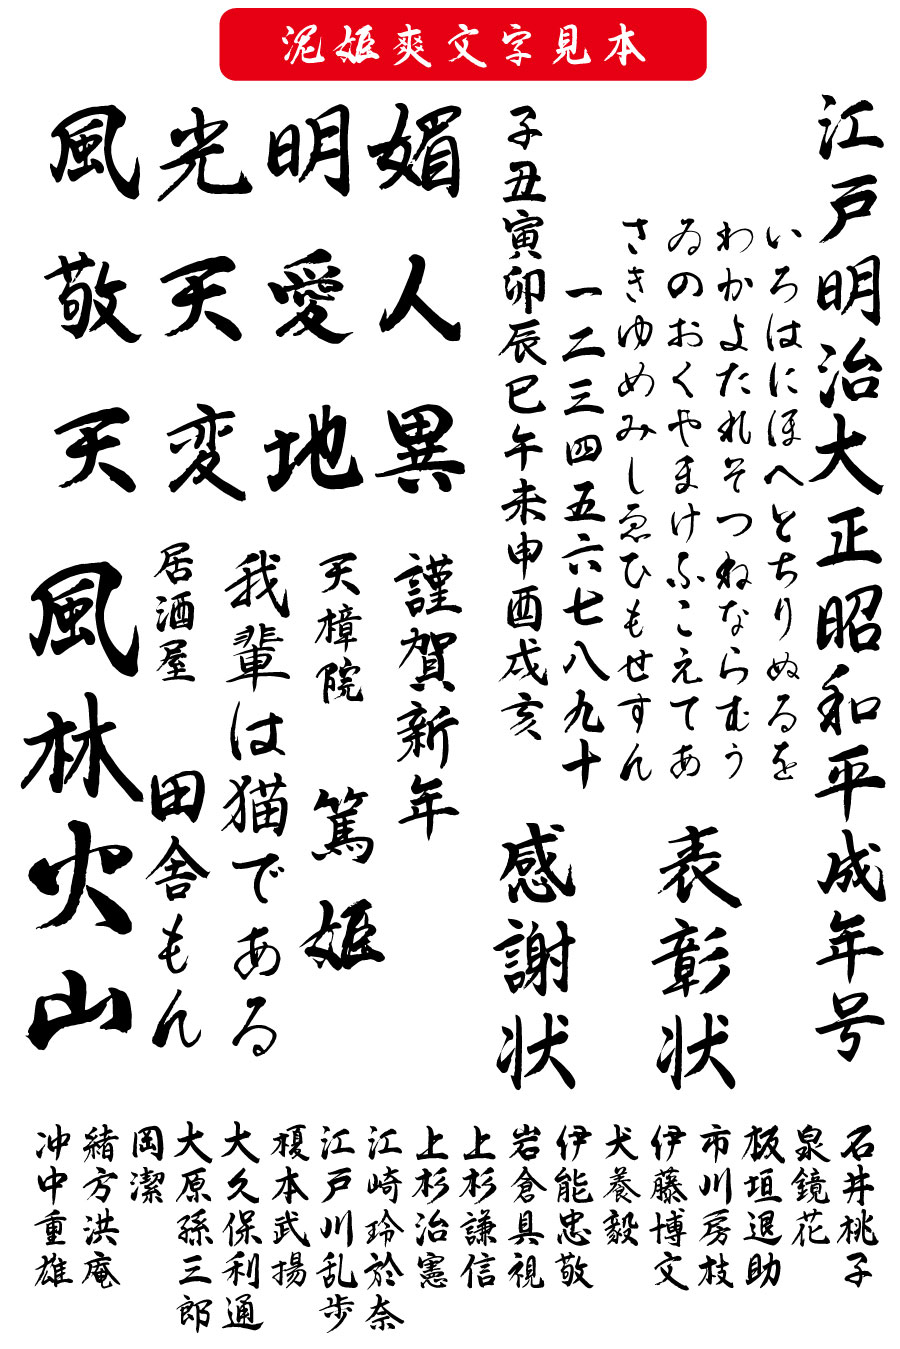 泥姫爽文字見本
江戸明治大正昭和平成年号
いろはにほへとちりぬるを
わかよたれそつねならむう
ゐのおくやまけふこえてあ
さきゆめみしゑひもせすん
一二三四五六七八九十
子丑寅卯辰巳午未申酉戌亥
表彰状
感謝状
風光明媚
敬天愛人
天変地異
謹賀新年
天樟院
篤姫
我輩は猫である
居酒屋
田舎もん
風林火山
石井桃子
泉鏡花
板垣退助
市川房枝
伊藤博文
犬養毅
伊能忠敬
岩倉具視
上杉謙信
上杉治憲
江崎玲於奈
江戸川乱歩
榎本武揚
大久保利通
大原孫三郎
岡潔
緒方洪庵
冲中重雄